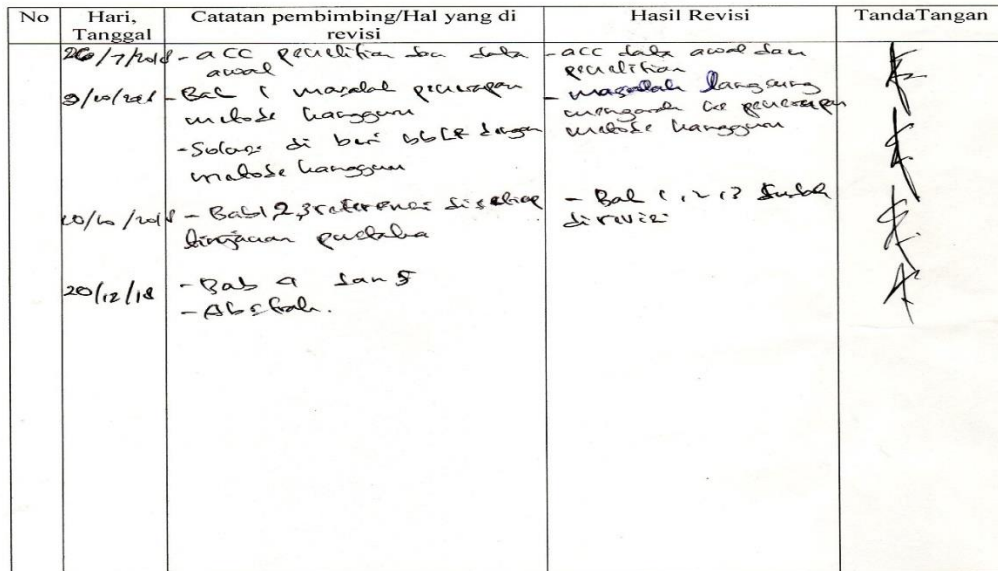 No
Hari, Tanggal
Catatan pembimbing/Hal yang di revisi
Hasil Revisi
TandaTangan
26/7/2018
- acc penelitian data
awal
- acc data awal dan
penelitian
- Bab 1 masalah penerapan
metode hanggum
- Solusi di beri dengan
metode hanggum
- masalah langsung
mengarah ke penerapan
metode hanggum
- Bab 1 2, 3 referensi disetiap
tinjauan pustaka
- Bab 1, 2, 3 sudah
direvisi
20/12/18
- Bab 4 dan 5
- Abstrak.